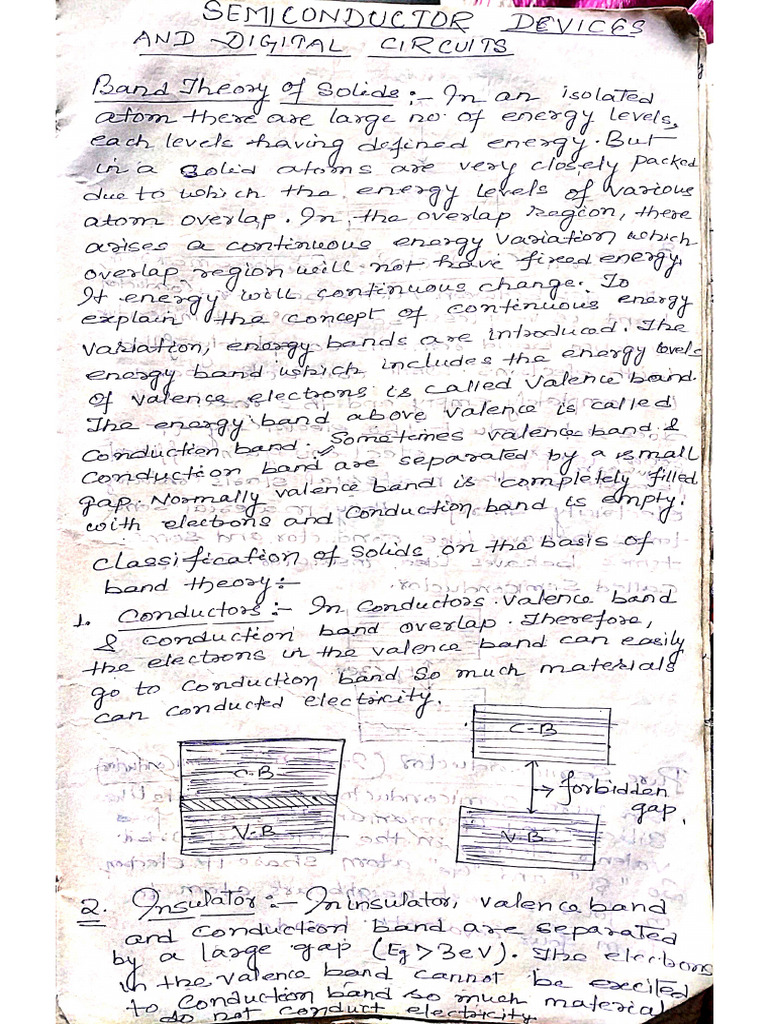 SEMICONDUCTOR DEVICES
AND DIGITAL CIRCUITS
Band Theory of Solids :- In an isolated
atom there are large no. of energy levels,
each levels having defined energy. But
in a solid atoms are very closely packed
due to which the energy levels of various
atom overlap. In the overlap region, there
arises a continuous energy variation which
overlap region will not have fixed energy.
It energy will continuous change. To
explain the concept of continuous energy
variation, energy bands are introduced. The
energy band which includes the energy levels
of valence electrons is called valence band.
The energy band above valence is called
conduction band. Sometimes valence band &
conduction band are separated by a small
gap. Normally valence band is completely filled
with electrons and conduction band is empty.
Classification of Solids on the basis of
band theory :-
1. Conductors :- In conductors valence band
& conduction band overlap. Therefore,
the electrons in the valence band can easily
go to conduction band so much materials
can conducted electricity.
C-B
V-B
C-B
→ forbidden
gap.
V-B
2. Insulator :- In insulator, valence band
and conduction band are separated
by a large gap (Eg > 3eV). The electrons
in the valence band cannot be excited
to conduction band so much material
do not conduct electricity.